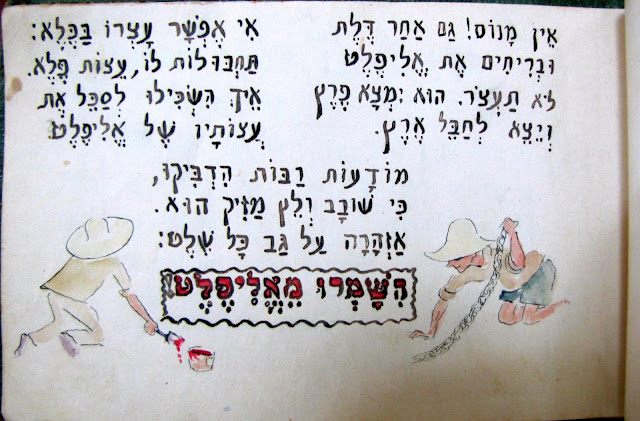 אֵין מָנוֹס! גַּם אַחַר דֶּלֶת
וּבְרִיחִים אֶת אֱלִיפֶלֶט
לֹא תַעְצֹר. הוּא יִמְצָא פֶרֶץ
וְיֵצֵא לְחַבֵּל אֶרֶץ.
אִי אֶפְשָׁר עָצְרוֹ בַּכֶּלֶא:
תַּחְבּוּלוֹת לוֹ, עֵצוֹת פֶּלֶא.
אֵיךְ הִשְׂכִּילוּ לְסַכֵּל אֶת
עֲצוֹתָיו שֶׁל אֱלִיפֶלֶט
מוֹדָעוֹת רַבּוֹת הִדְבִּיקוּ,
כִּי שׁוֹבָב וְלֵץ מַזִּיק הוּא.
אַזְהָרָה עַל גַּב כָּל שֶׁלֶט:
הִשָּׁמְרוּ מֵאֱלִיפֶלֶט